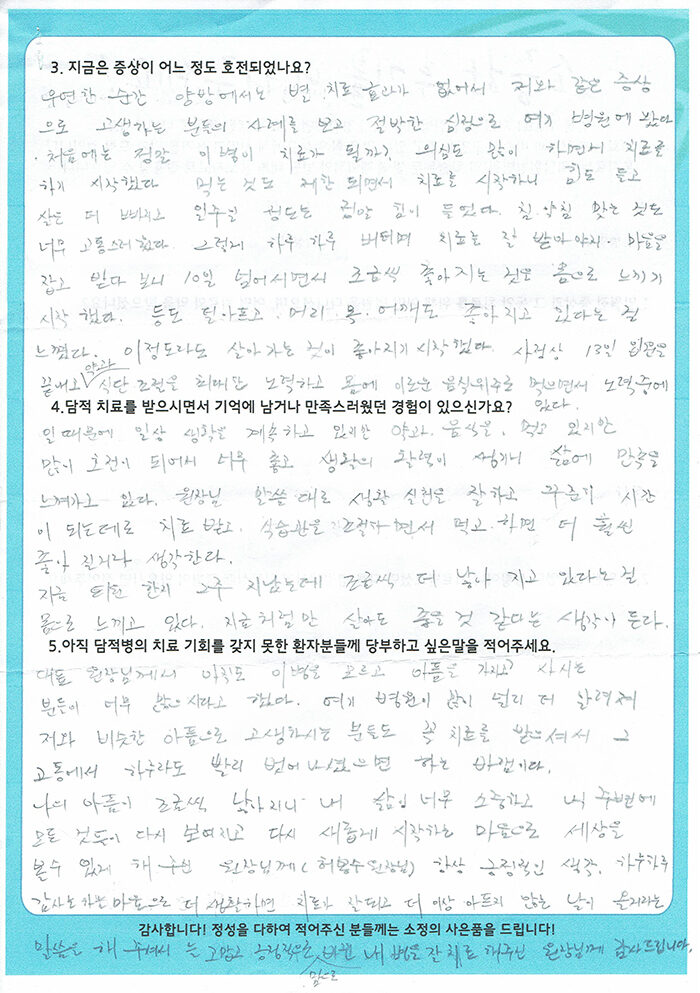 3. 지금은 증상이 어느 정도 호전되었나요?
우연한 순간 양방에서는 별 치료 효과가 없어서 저와 같은 증상
으로 고생하는 분들의 사례를 보고 절박한 심정으로 여기 병원에 왔다
처음에는 정말 이 병이 치료가 될까? 의심도 많이 하면서 치료를
하기 시작했다 먹는 것도 제한 되면서 치료를 시작하니 힘도 들고
살은 더 빠지고 일주일 정도는 정말 힘이 들었다. 침. 약침 맞는 것도
너무 고통스러웠다. 그렇게 하루 하루 버티며 치료를 잘 받아야지. 마음을
잡고 받다 보니 10일 넘어서면서 조금씩 좋아지는 것을 몸으로 느끼기
시작했다. 등도 덜아프고. 머리. 목. 어깨도 좋아지고 있다는 걸
느꼈다. 이정도라도 살아가는 것이 좋아지기 시작했다. 사정상 13일 입원을
끝내고 약과 식단 조절을 최대한 노력하고 몸에 이로운 음식위주로 먹으면서 노력중에
4.담적 치료를 받으시면서 기억에 남거나 만족스러웠던 경험이 있으신가요?
있다.
일 때문에 일상 생활을 계속하고 있지만 약과. 음식을. 먹고 있지만
많이 호전이 되어서 너무 좋고 생활의 활력이 생기니 삶에 만족을
느껴가고 있다. 원장님 말씀 대로 생활 실천을 잘하고 꾸준히 시간
이 되는데로 치료 받고. 식습관을 조절하면서 먹고 하면 더 훨씬
좋아 질거라 생각한다.
지금 퇴원 한지 2주 지났는데 조금씩 더 낳아 지고 있다는 걸
몸으로 느끼고 있다. 지금처럼만 살아도 좋을 것 같다는 생각이 든다.
5.아직 담적병의 치료 기회를 갖지 못한 환자분들께 당부하고 싶은말을 적어주세요.
대표 원장님께서 아직도 이병을 모르고 아픔을 가지고 사시는
분들이 너무 많으시다고 했다. 여기 병원이 많이 널리 더 알려져
저와 비슷한 아픔으로 고생하시는 분들도 꼭 치료를 받으셔서 그
고통에서 하루라도 빨리 벗어나셨으면 하는 바램이다.
나의 아픔이 조금씩 낳아지니 내 삶이 너무 소중하고 내 주변에
모든 것들이 다시 보여지고 다시 새롭게 시작하는 마음으로 세상을
볼수 있게 해 주신 원장님께( 원장님) 항상 긍정적인 생각. 하루하루
감사는하는 마음으로 더 생활하면 치료가 잘되고 더 이상 아프지 않는 날이 올거라는
감사합니다! 정성을 다하여 적어주신 분들께는 소정의 사은품을 드립니다!
말씀을 해 주셔서 는 고맙고 긍정적으로 맘으로 내 병을 잘 치료 해주신 원장님께 감사드립니다.